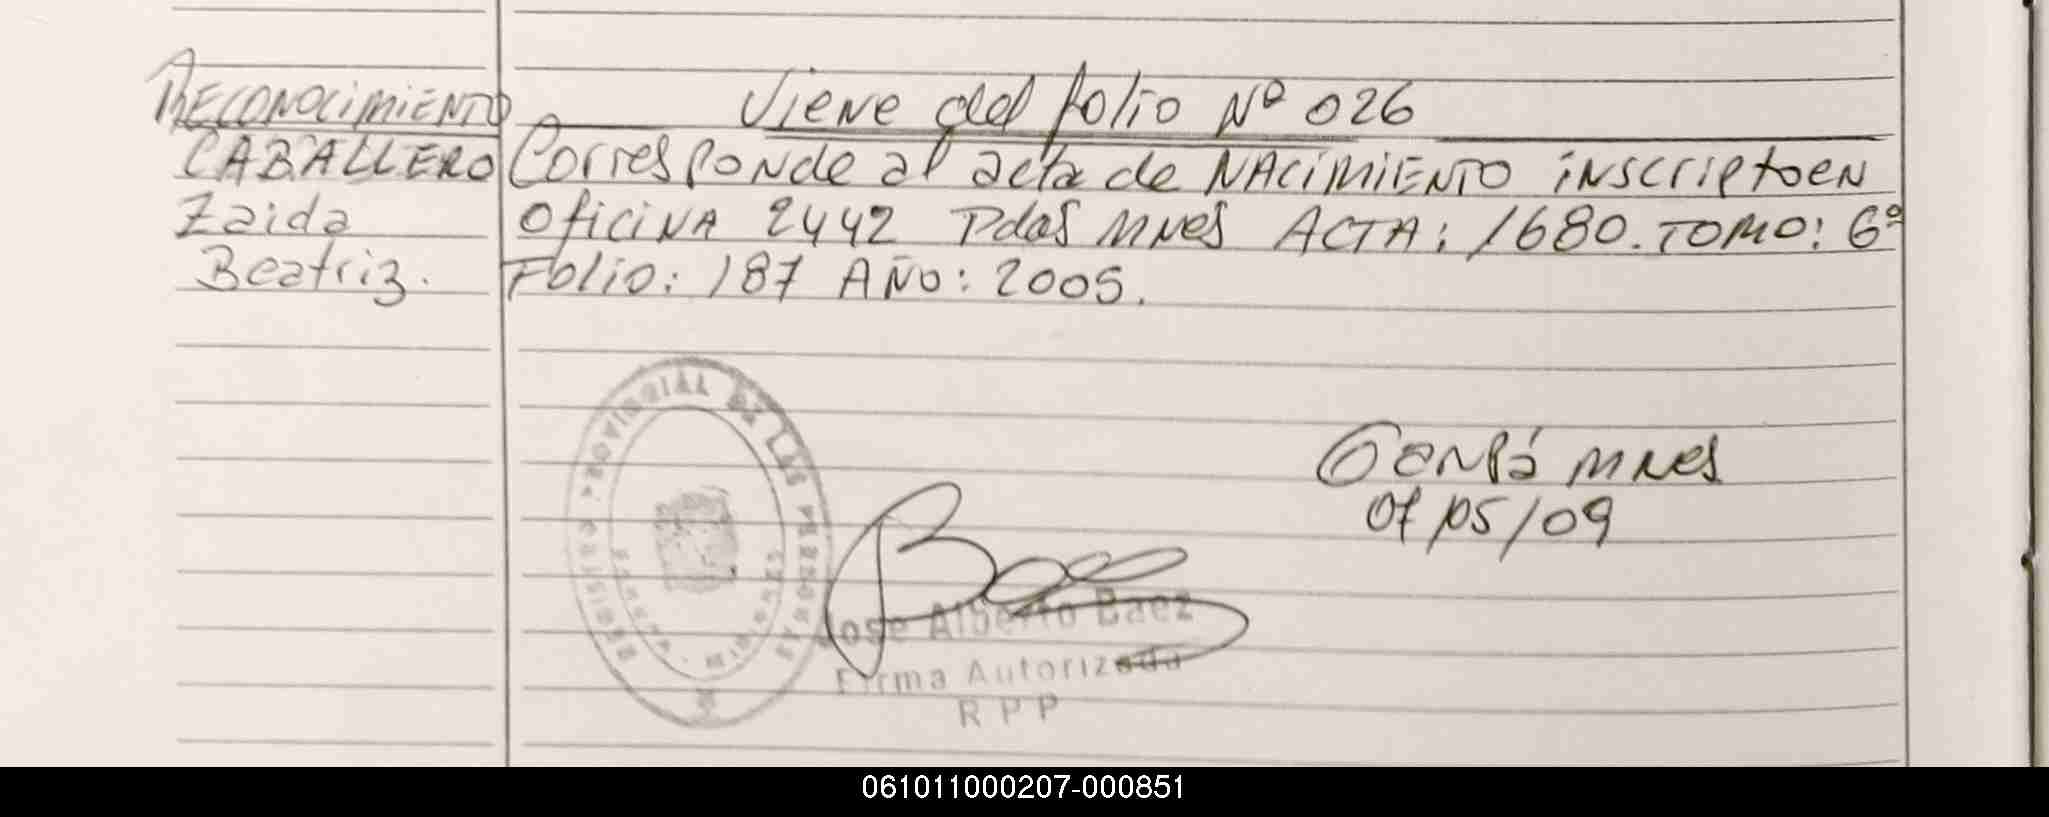 RECONOCIMIENTO
CABALLERO
Zaida
Beatriz.
Viene del folio Nº 026
Corresponde al acta de NACIMIENTO inscripto en
Oficina 2442 Pdas Mnes ACTA: 1680. TOMO: 6º
Folio: 187 AÑO: 2005.
REGISTRO PROVINCIAL DE LAS PERSONAS
Mnes
07/05/09
Jose Alberto Baez
Firma Autorizada
R P P
061011000207-000851